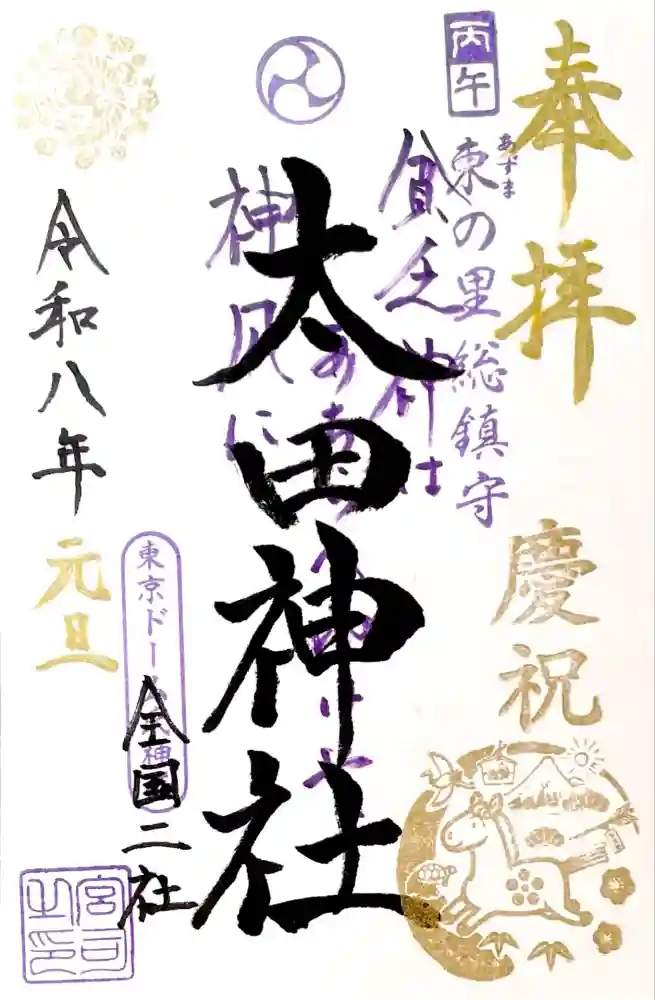 奉拝
慶祝
丙午
東の里総鎮守
あずま
貧乏神は
神風に
太田神社
令和八年
元旦
全国二社
宮司之印